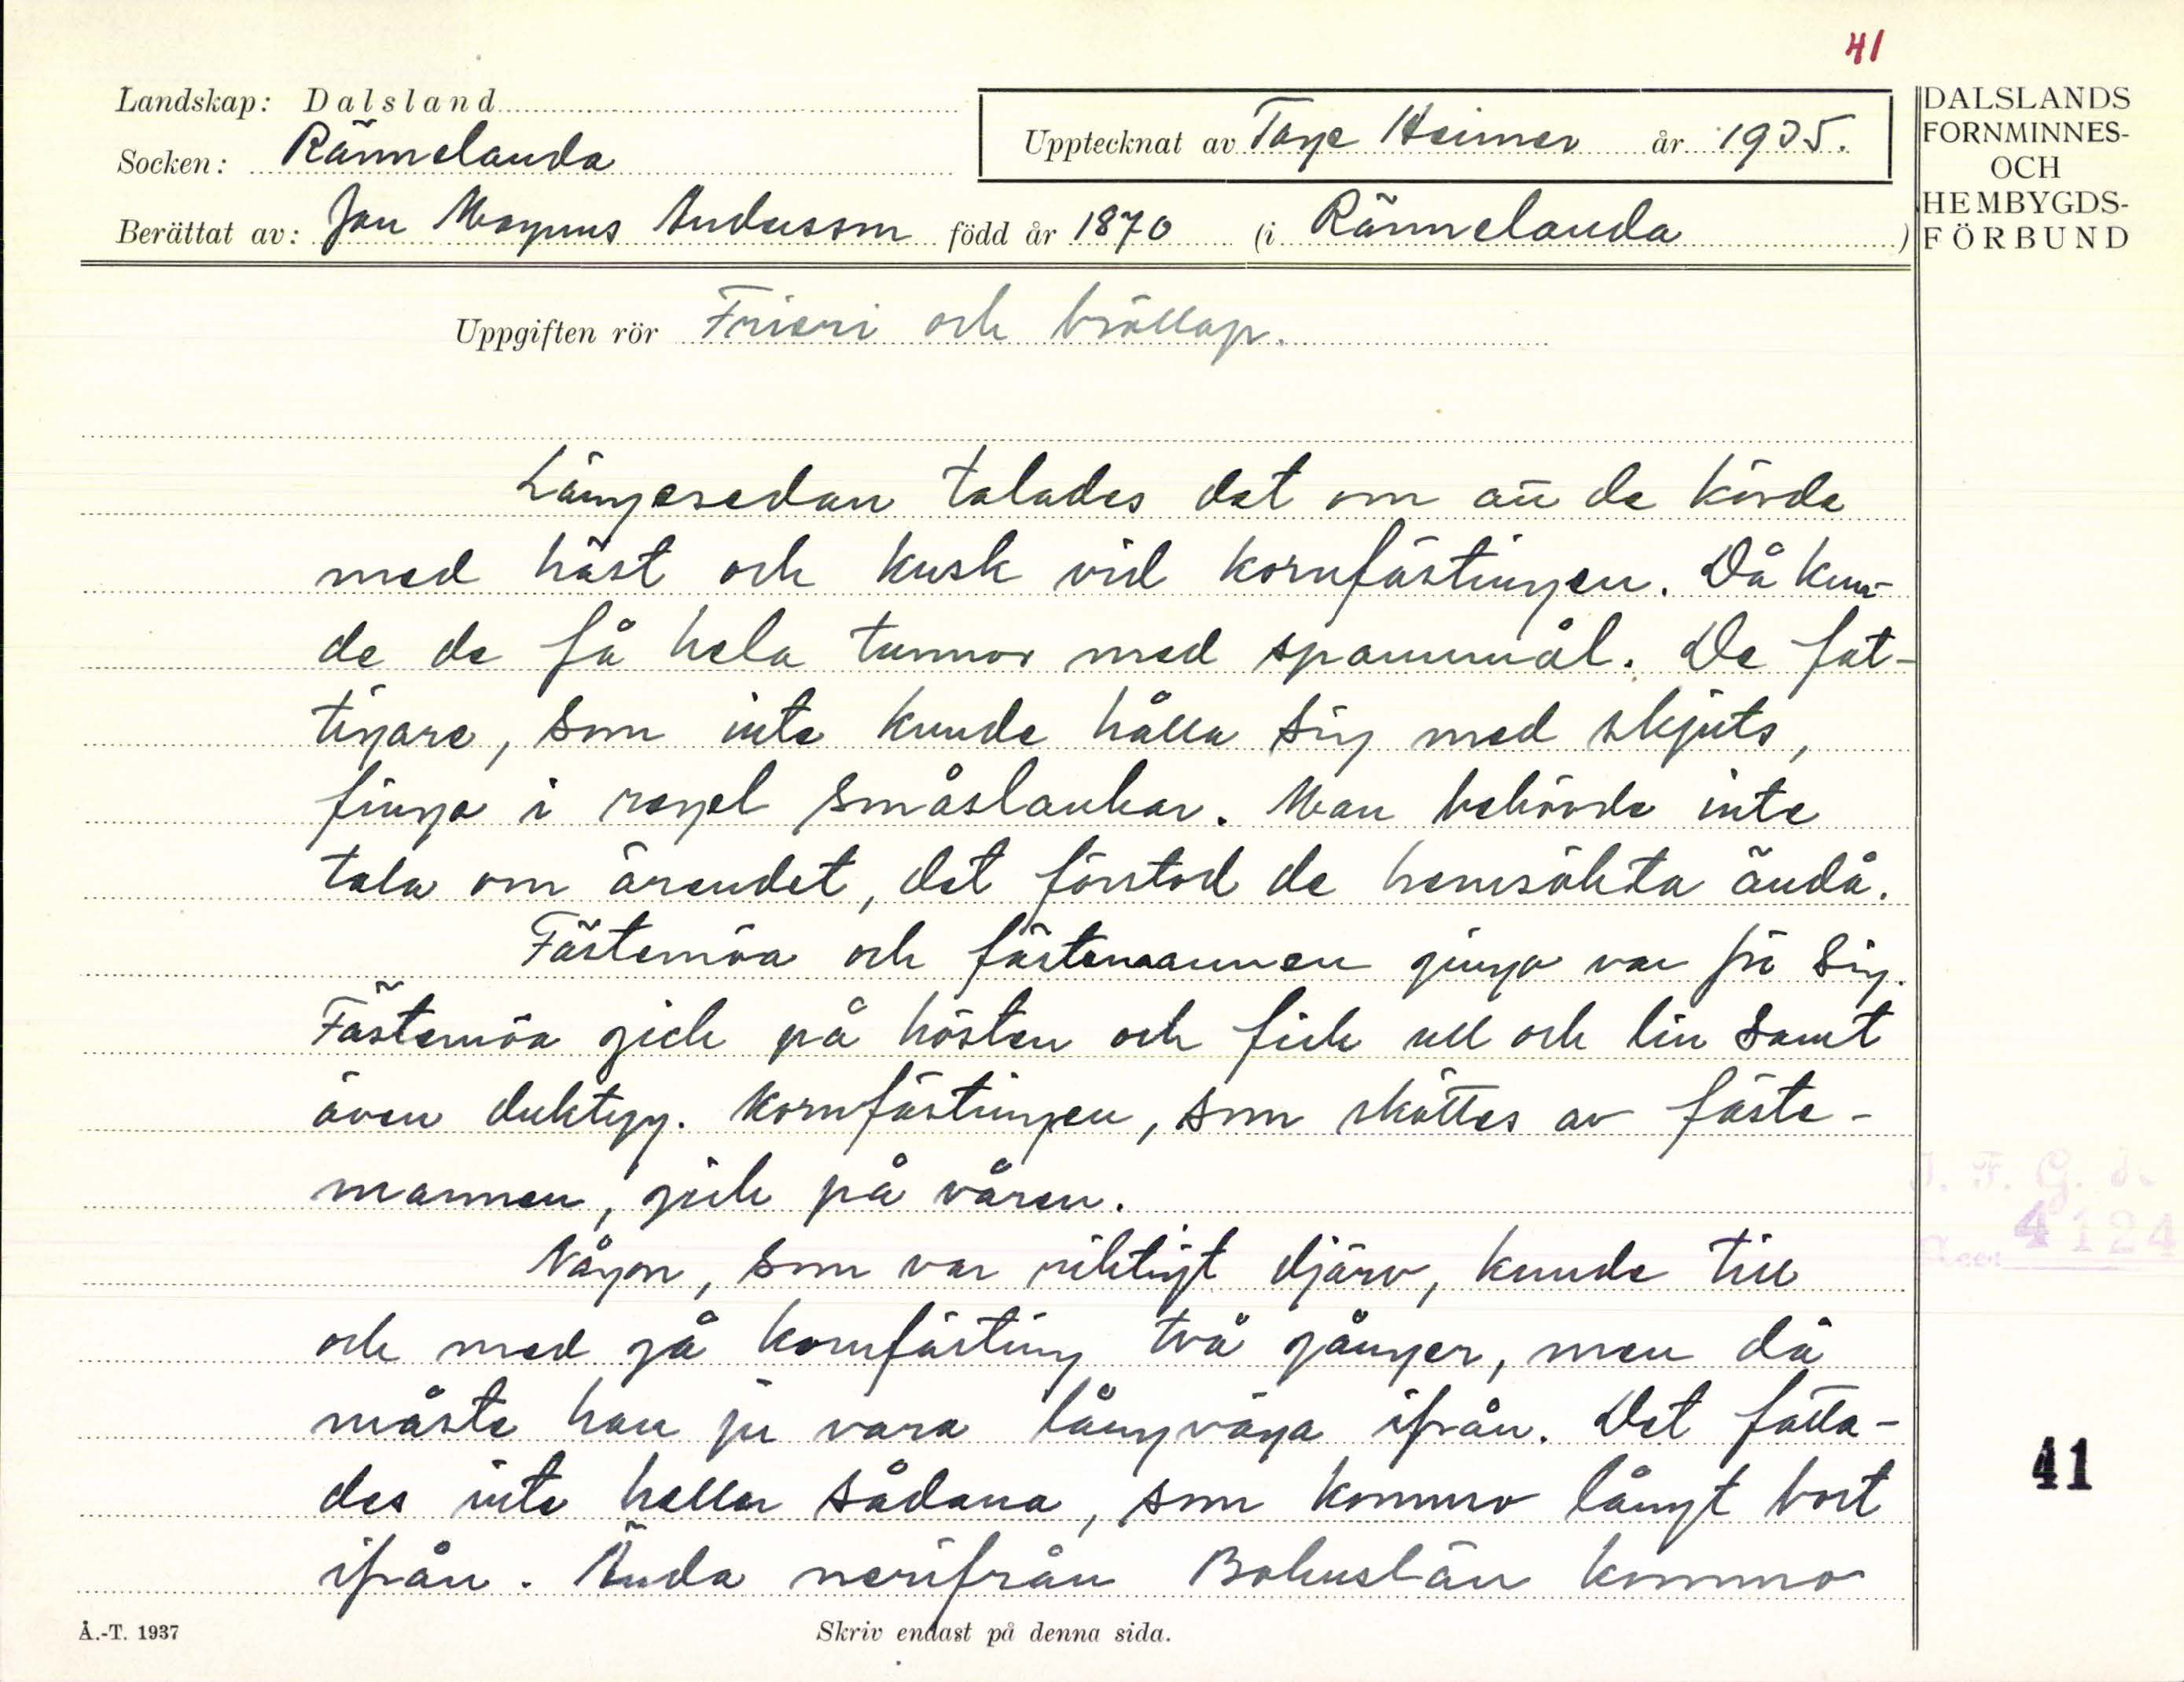 41
Landskap: Dalsland
Socken: Rännelanda
Upptecknat av Tage Heimer år 1935.
Berättat av: Jan Magnus Andersson född år 1870 (i Rännelanda)
DALSLANDS
FORNMINNES-
OCH
HEMBYGDS-
FÖRBUND
Uppgiften rör Frieri och bröllop.
Längesedan talades det om att de körde
med häst och kusk vid kornfästingen. Då kun-
de de få hela tunnor med spannmål. De fat-
tigare, som inte kunde hålla sig med skjuts,
finga i regel småslankar. Man behövde inte
tala om ärendet, det förstod de hemsökta ändå.
Fästemöa och fästemannen gingo var för sig.
Fästemöa gick på hösten och fick ull och lin samt
även duktyg. Kornfästingen, som sköttes av fäste-
mannen, gick på våren.
Någon, som var riktigt djärv, kunde till
och med gå kornfästing två gånger, men då
måste han ju vara långväga ifrån. Det fatta-
des inte heller sådana, som kommo långt bort
ifrån. Ända nerifrån Bohuslän kommo
I. F. G. s.
Acc. 4124
41
Å.-T. 1937
Skriv endast på denna sida.